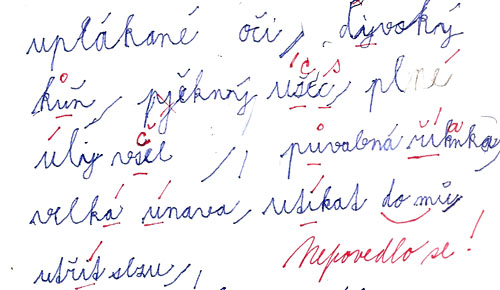 uplákané oči, dyvoký
kůň, pjěkný ušéc, plné
úlý včel, půvabná říkanka,
velká únava, utíkat do můj
utřít slzu,
Nepovedlo se!